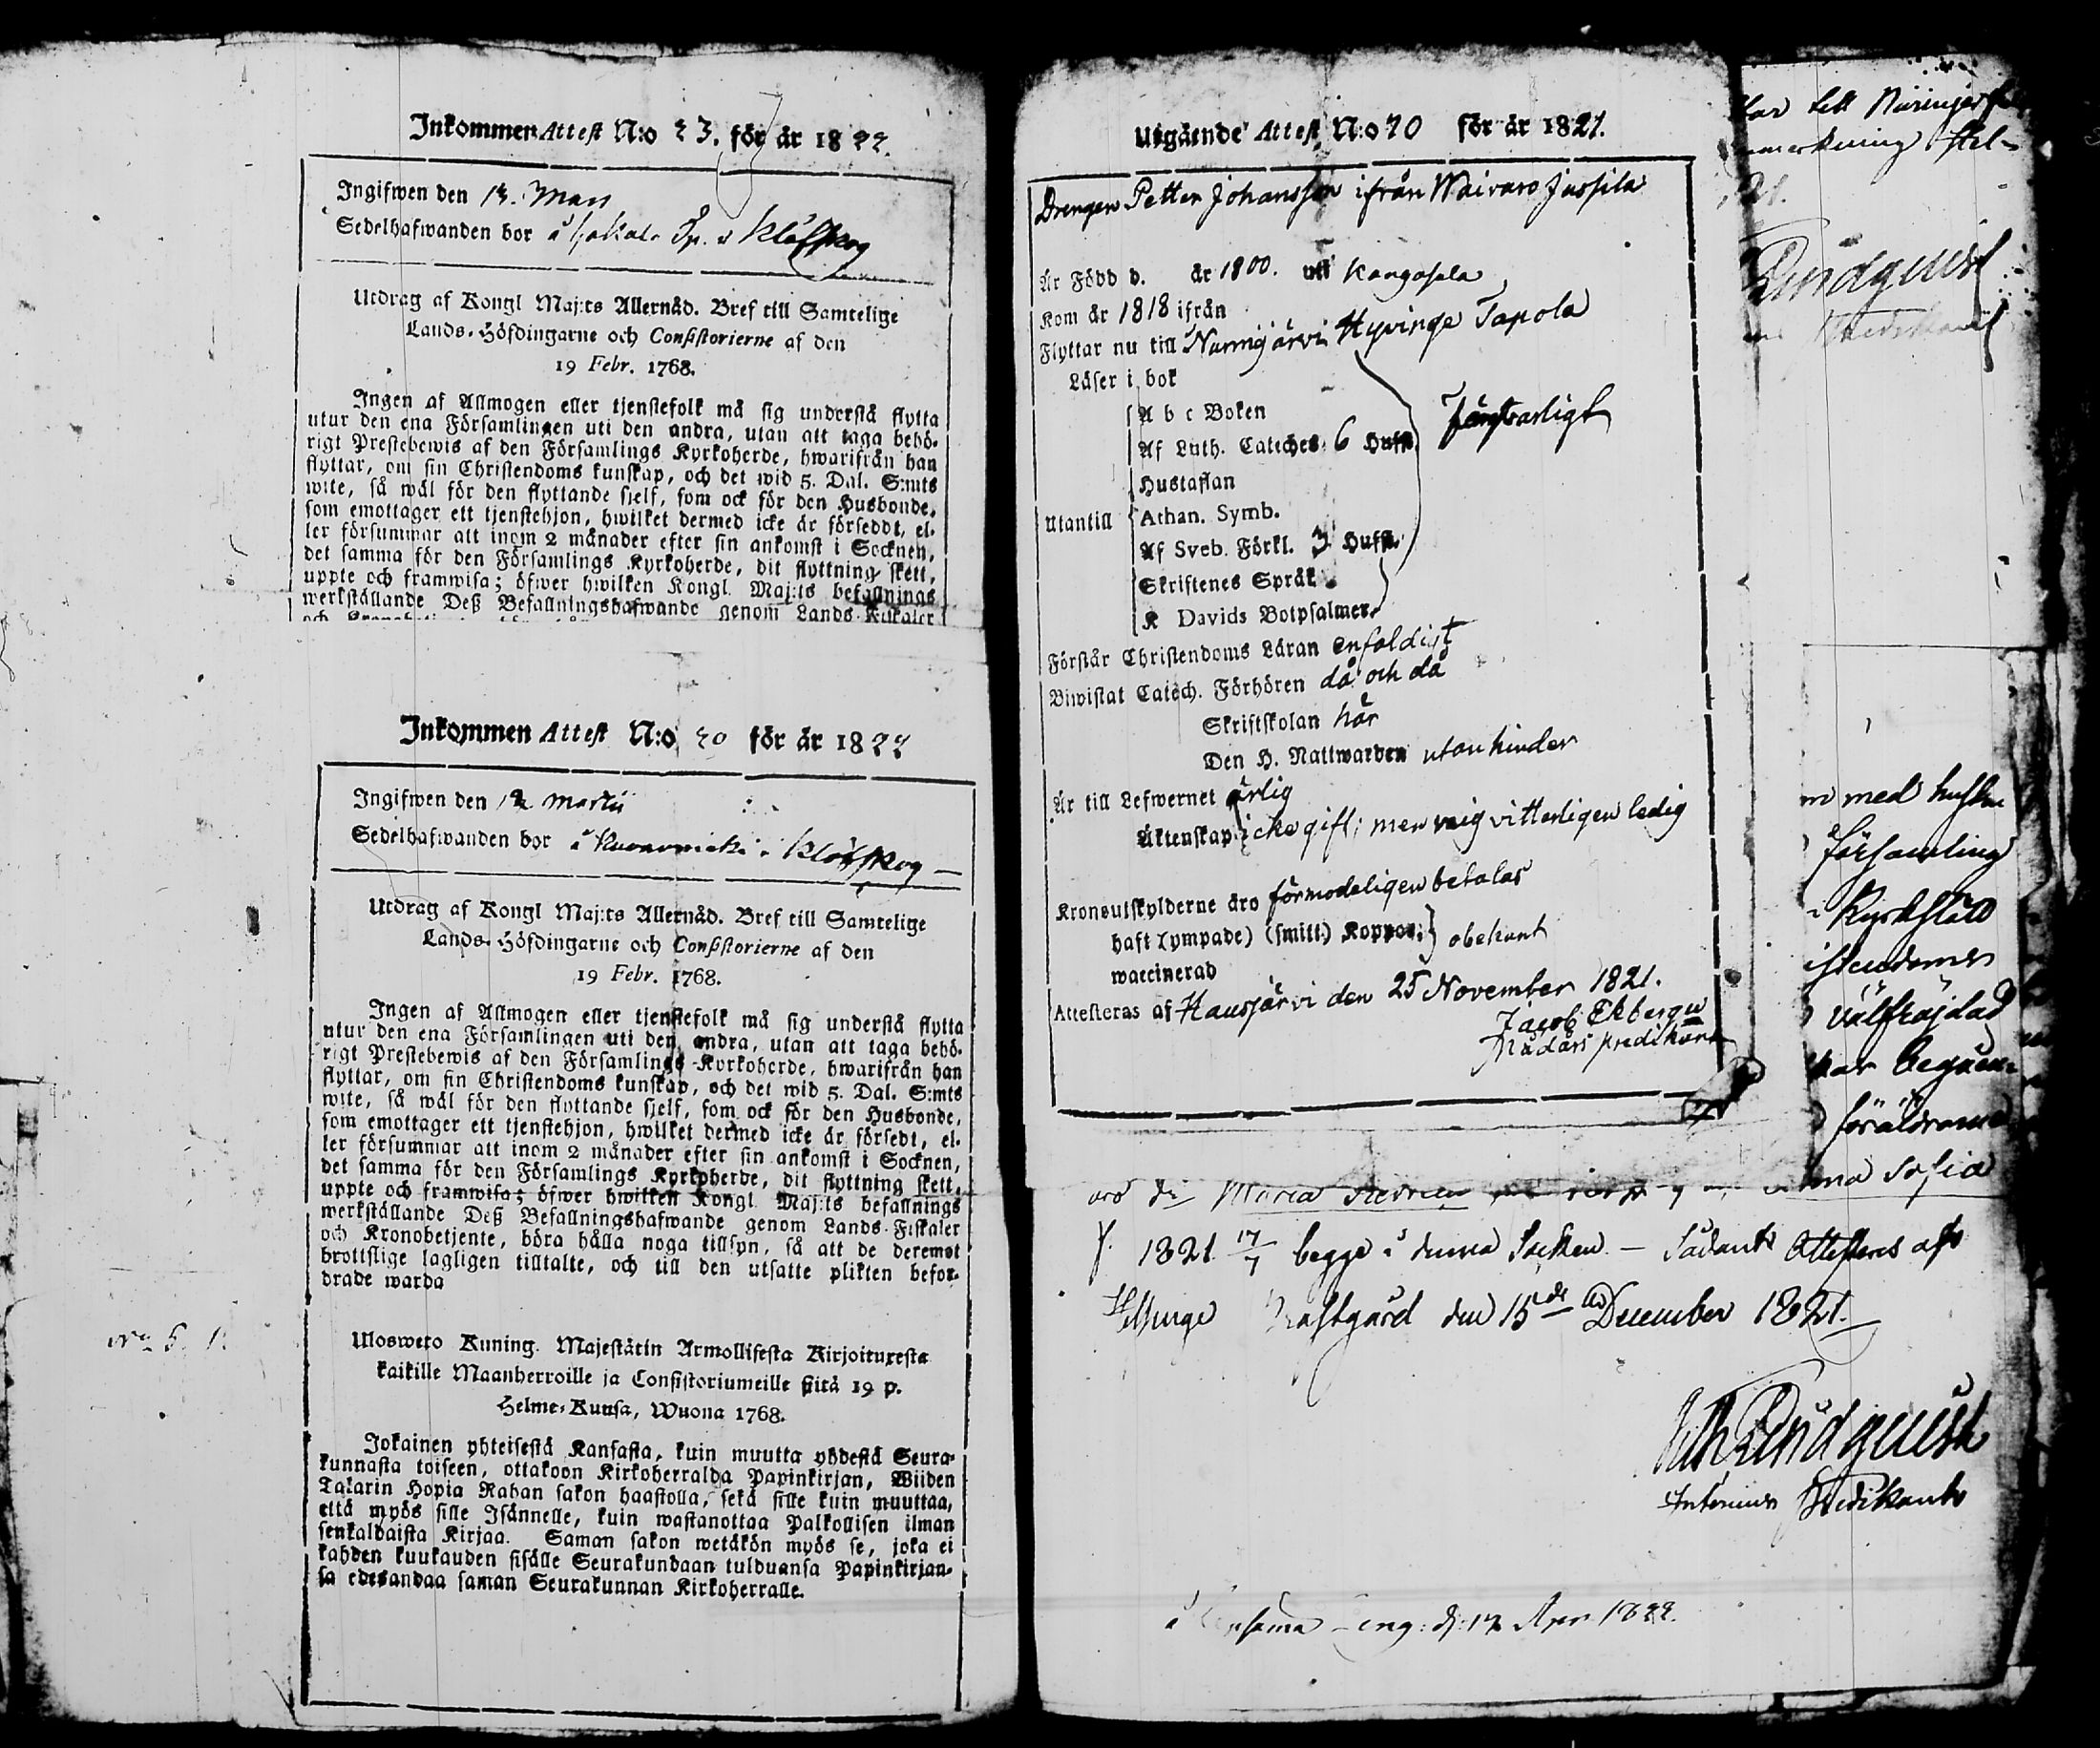 Inkommen Attest N:o 23. för år 1822.
Ingifwen den 12. Mars
Sedelhafwanden bor å Klöfskog
Utdrag af Kongl Maj:ts Allernåd. Bref till Samtelige
Lands-Höfdingarne och Consistorierne af den
19 Febr. 1768.
Ingen af Allmogen eller tjenstefolk må sig understå flytta
utur den ena Församlingen uti den andra, utan att taga behö-
rigt Prestebewis af den Församlings Kyrkoherde, hwarifrån han
flyttar, om sin Christendoms kunskap, och det wid 5. Dal. S:mts
wite, så wäl för den flyttande sjelf, som ock för den Husbonde,
som emottager ett tjenstehjon, hwilket dermed icke är förseddt, el-
ler försummar att inom 2 månader efter sin ankomst i Socknen,
det samma för den Församlings Kyrkoherde, dit flyttning skett,
uppte och framwisa; öfwer hwilken Kongl. Maj:ts befallnings
werkställande Deß Befallningshafwande genom Lands-Fiskaler
Inkommen Attest N:o 20 för år 1822
Ingifwen den 12 Martii
Sedelhafwanden bor å Klöfskog
Utdrag af Kongl Maj:ts Allernåd. Bref till Samtelige
Lands-Höfdingarne och Consistorierne af den
19 Febr. 1768.
Ingen af Allmogen eller tjenstefolk må sig understå flytta
utur den ena Församlingen uti den andra, utan att taga behö-
rigt Prestebewis af den Församlings Kyrkoherde, hwarifrån han
flyttar, om sin Christendoms kunskap, och det wid 5. Dal. S:mts
wite, så wäl för den flyttande sjelf, som ock för den Husbonde,
som emottager ett tjenstehjon, hwilket dermed icke är försedt, el-
ler försummar att inom 2 månader efter sin ankomst i Socknen,
det samma för den Församlings Kyrkoherde, dit flyttning skett,
uppte och framwisa; öfwer hwilken Kongl Maj:ts befallnings
werkställande Deß Befallningshafwande genom Lands-Fiskaler
och Kronobetjente, böra hålla noga tillsyn, så att de deremot
brottslige lagligen tilltalte, och till den utsatte plikten befor-
drade warda
Ulosweto Kuning. Majestätin Armollisesta Kirjoituxesta
kaikille Maanherroille ja Consistoriumeille siitä 19 p.
Helme-Kuusa, Wuona 1768.
Jokainen yhteisestä Kansasta, kuin muutta yhdestä Seura-
kunnasta toiseen, ottakoon Kirkoherralda Papinkirjan, Wiiden
Talarin Hopia Rahan sakon haastolla, sekä sille kuin muuttaa,
että myös sille Isännelle, kuin wastanottaa Palkollisen ilman
senkaldaista Kirjaa. Saman sakon wetäkön myös se, joka ei
kahden kuukauden sisälle Seurakundaan tulduansa Papinkirjan-
sa edesandaa saman Seurakunnan Kirkoherralle.
Utgående Attest N:o 70 för år 1821.
Drengen Petter Johansson ifrån Waivaro Jussila
Är Född d. år 1800. uti Kangasala
Kom år 1818 ifrån
Flyttar nu till Nurmijärvi Hyvinge Tapola
Läser i bok
A b c Boken
Af Luth. Catéches. 6 Huf. Försvarligt
Hustaflan
Utantill
Athan. Symb.
Af Sveb. Förkl. 3 Huf.
Skriftenes Språk
K Davids Botpsalmer
Förstår Christendoms Läran enfaldigt
Biwistat Catech. Förhören då och då
Skriftskolan här
Den H. Nattwarden utan hinder
Är till Lefwernet ärlig
Äktenskap icke gift; men mig vitterligen ledig
Kronoutskylderne äro förmodeligen betalas
haft (ympade) (smitt.) Koppor, obekant
waccinerad
Attesteras af Hausjärvi den 25 November 1821.
Jacob Ekbergu
Nådårs predikant
Maria
1821 17/7 begge i denna Socken – Sådant Attesteras af
Helsinge Prästgård den 15de December 1821.
Lindquist
Interims Predikant
ing: d: 12 Apr 1822.
har till
Lindquist
med hustru
församling
Kyrkslätt
istendomen
välfrejdad
har begge
föräldrarne
Sofia